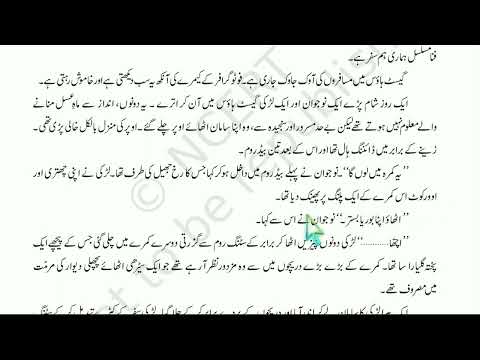 فنا مسلسل ہماری ہم سفر ہے۔
گیسٹ ہاؤس میں مسافروں کی آوک جاوک جاری ہے۔ فوٹوگرافر کے کیمرے کی آنکھ یہ سب دیکھتی ہے اور خاموش رہتی ہے۔
ایک روز شام پڑے ایک نوجوان اور ایک لڑکی گیسٹ ہاؤس میں آن کر اترے۔ یہ دونوں، انداز سے ماہِ عسل منانے
والے معلوم نہیں ہوتے تھے لیکن بے حد مسرور اور سنجیدہ سے، وہ اپنا سامان اٹھائے اوپر چلے گئے۔ اوپر کی منزل بالکل خالی پڑی تھی۔
زینے کے برابر میں ڈائننگ ہال تھا اور اس کے بعد تین بیڈ روم۔
”یہ کمرہ میں لوں گا“۔ نوجوان نے پہلے بیڈ روم میں داخل ہو کر کہا جس کا رخ جھیل کی طرف تھا۔ لڑکی نے اپنی چھتری اور
اوورکوٹ اس کمرے کے ایک پلنگ پر پھینک دیا تھا۔
”اٹھاؤ اپنا بوریا بستر۔“ نوجوان نے اس سے کہا۔
”اچّھا............“ لڑکی دونوں چیزیں اٹھا کر برابر کے سٹنگ روم سے گزرتی دوسرے کمرے میں چلی گئی جس کے پیچھے ایک
پختہ گلیارا سا تھا۔ کمرے کے بڑے بڑے دریچوں میں سے وہ مزدور نظر آ رہے تھے جو ایک سیڑھی اٹھائے پچھلی دیوار کی مرمّت
میں مصروف تھے۔
© NCERT
not to be republished